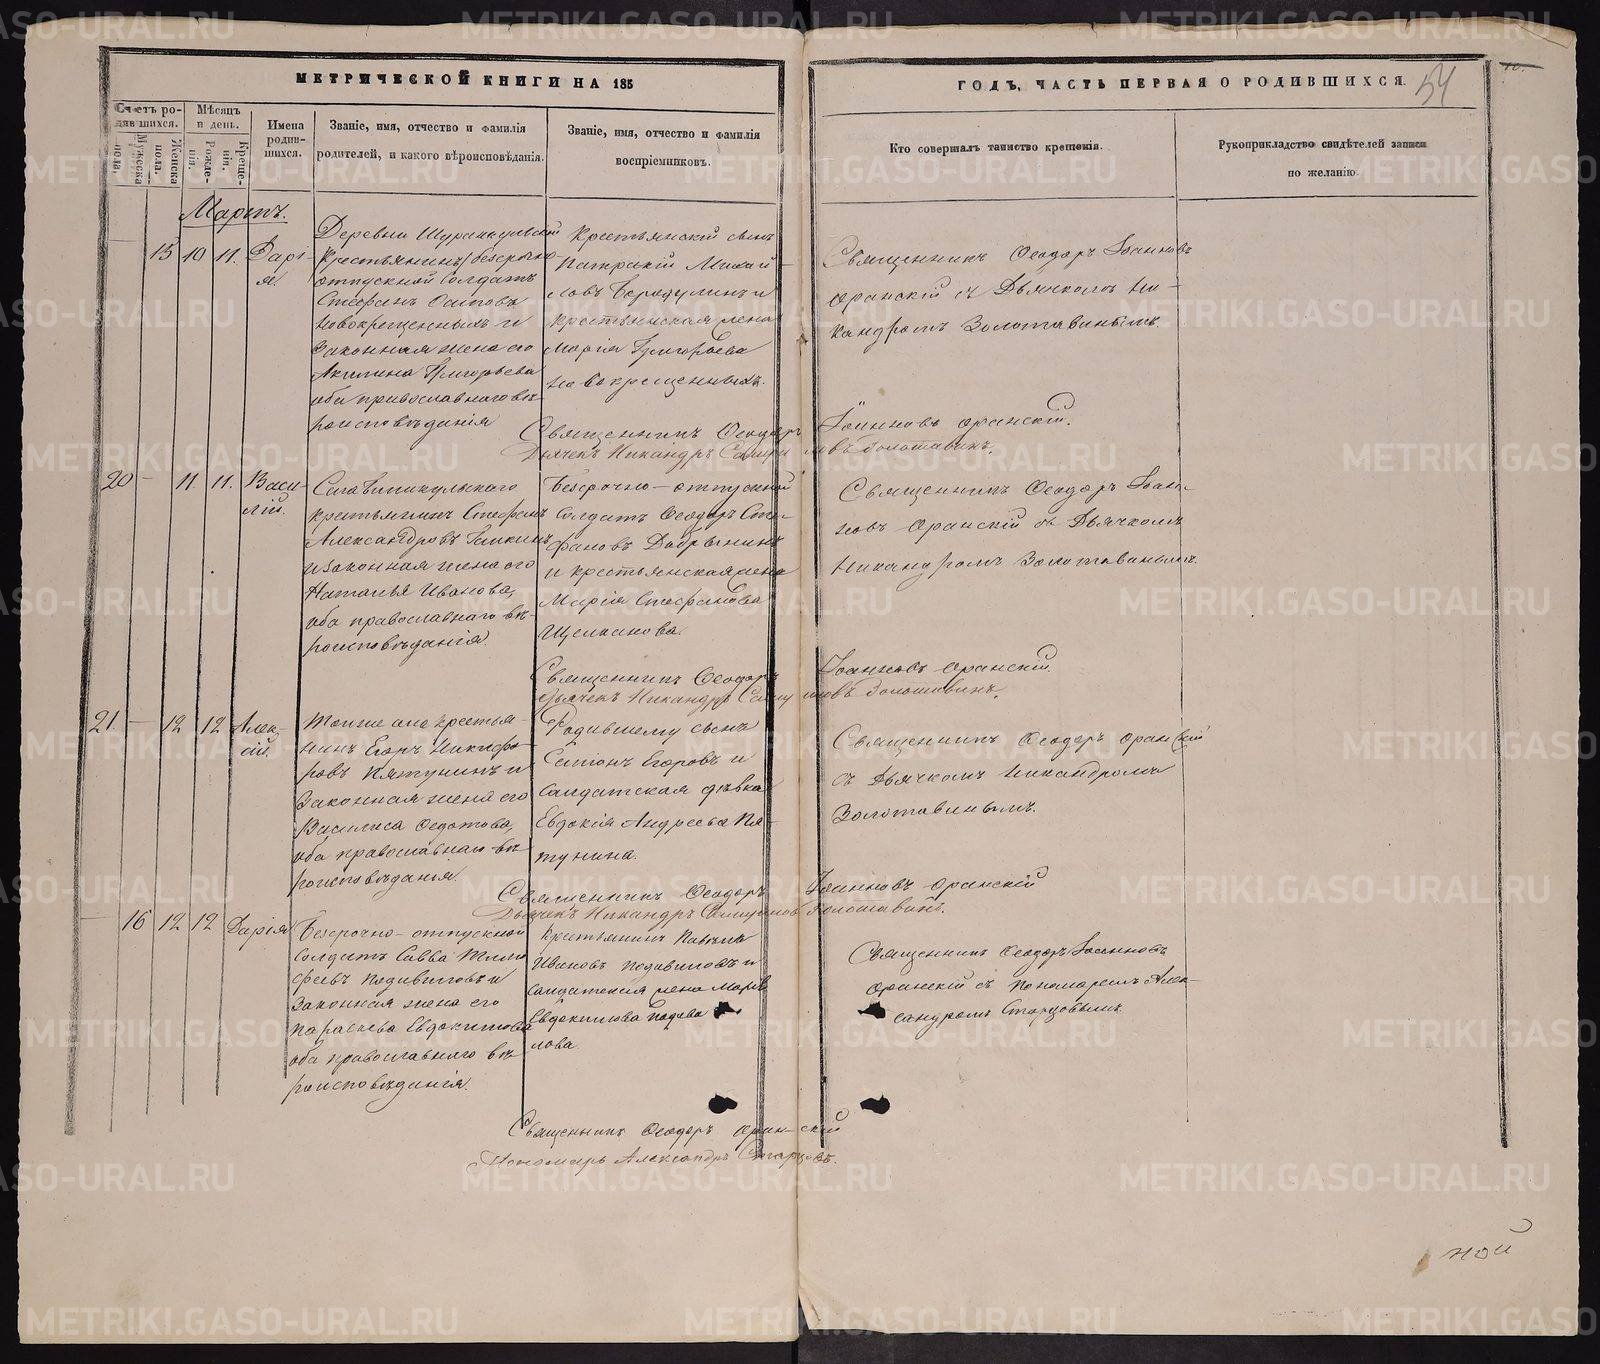 МЕТРИЧЕСКОЙ КНИГИ НА 185
ГОДЪ, ЧАСТЬ ПЕРВАЯ О РОДИВШИХСЯ.
54
Счетъ родившихся.
Мужеска пола.
Женска пола.
Мѣсяцъ и день.
Рожденія.
Крещенія.
Имена родившихся.
Званіе, имя, отчество и фамилія
родителей, и какого вѣроисповѣданія.
Званіе, имя, отчество и фамилія
воспріемниковъ.
Кто совершалъ таинство крещенія.
Рукоприкладство свидѣтелей записи
по желанію.
Мартъ.
15 10 11. Дарі-
я.
Деревни
Крестьянинъ безсрочно
отпускной солдатъ
Стефанъ Осиповъ
Новокрещенныхъ и
законная жена его
Акилина Григорьева
оба православнаго вѣ-
роисповѣданія
Крестьянскій сынъ
Патрикій Михай-
ловъ Берсенев и
крестьянская жена
Марія Григорьева
Новокрещенныхъ.
Священникъ Ѳеодоръ Іоанновъ
Оранскій съ Дьячкомъ Ни-
кандромъ Золотавинымъ.
Священникъ Ѳеодоръ Іоанновъ Оранскій.
Дьячекъ Никандръ Самуиловъ Золотавинъ.
20 – 11. 11. Васи-
лій.
Села
крестьянинъ Стефанъ
Александровъ
и законная жена его
Наталья Иванова,
оба православнаго вѣ-
роисповѣданія.
Безсрочно-отпускной
Солдатъ Ѳеодоръ Сте-
фановъ Добрынинъ
и крестьянская жена
Марія Стефанова
Щелканова.
Священникъ Ѳеодоръ Іоан-
новъ Оранскій съ Дьячкомъ
Никандромъ Золотавинымъ.
Священникъ Ѳеодоръ Іоанновъ Оранскій.
Дьячекъ Никандръ Самуиловъ Золотавинъ.
21. – 12 12 Алек-
сій.
Того же села крестья-
нинъ Егоръ Никифо-
ровъ Пятунинъ и
законная жена его
Василиса Ѳедотова,
оба православнаго вѣ-
роисповѣданія.
Родившему сынъ
Егоровъ и
Солдатская дѣвка
Евдокія Андреева Пя-
тунина.
Священникъ Ѳеодоръ Оранскій
съ Дьячкомъ Никандромъ
Золотавинымъ.
Священникъ Ѳеодоръ Іоанновъ Оранскій
Дьячекъ Никандръ Самуиловъ Золотавинъ.
– 16 12 12 Дарія
Безсрочно-отпускной
Солдатъ Савва Тимо-
феевъ Подивиловъ и
законная жена его
Параскева Евдокимова
оба православнаго вѣ-
роисповѣданія.
Крестьянинъ
Ивановъ Подивиловъ и
солдатская жена Марія
Евдокимова Подиви-
лова.
Священникъ Ѳеодоръ Іоанновъ
Оранскій съ Пономаремъ Алек-
сандромъ Старцовымъ.
Священникъ Ѳеодоръ Оранскій
Пономарь Александръ Старцовъ.
ной
METRIKI.GASO-URAL.RU